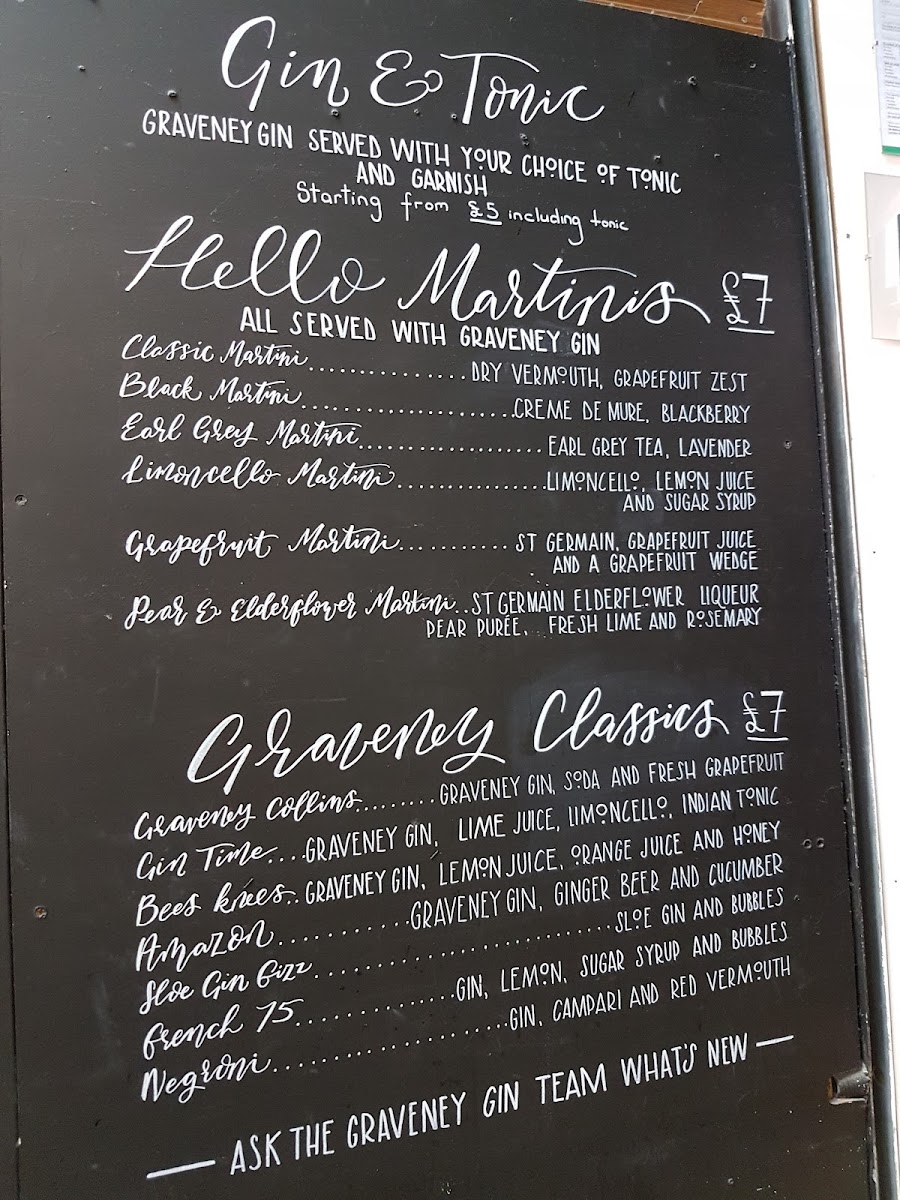 Gin & Tonic
GRAVENEY GIN SERVED WITH YOUR CHOICE OF TONIC
AND GARNISH
Starting from £5 including tonic
Hello Martinis £7
ALL SERVED WITH GRAVENEY GIN
Classic Martini...............DRY VERMOUTH, GRAPEFRUIT ZEST
Black Martini......................CREME DE MURE, BLACKBERRY
Earl Grey Martini..................EARL GREY TEA, LAVENDER
Limoncello Martini................LIMONCELLO, LEMON JUICE
AND SUGAR SYRUP
Grapefruit Martini...........ST GERMAIN, GRAPEFRUIT JUICE
AND A GRAPEFRUIT WEDGE
Pear & Elderflower Martini..ST GERMAIN ELDERFLOWER LIQUEUR
PEAR PURÉE, FRESH LIME AND ROSEMARY
Graveney Classics £7
Graveney Collins........GRAVENEY GIN, SODA AND FRESH GRAPEFRUIT
Gin Time....GRAVENEY GIN, LIME JUICE, LIMONCELLO, INDIAN TONIC
Bees knees..GRAVENEY GIN, LEMON JUICE, ORANGE JUICE AND HONEY
Amazon............GRAVENEY GIN, GINGER BEER AND CUCUMBER
Sloe Gin Fizz..............................SLOE GIN AND BUBBLES
French 75...............GIN, LEMON, SUGAR SYRUP AND BUBBLES
Negroni......................GIN, CAMPARI AND RED VERMOUTH
— ASK THE GRAVENEY GIN TEAM WHAT'S NEW —